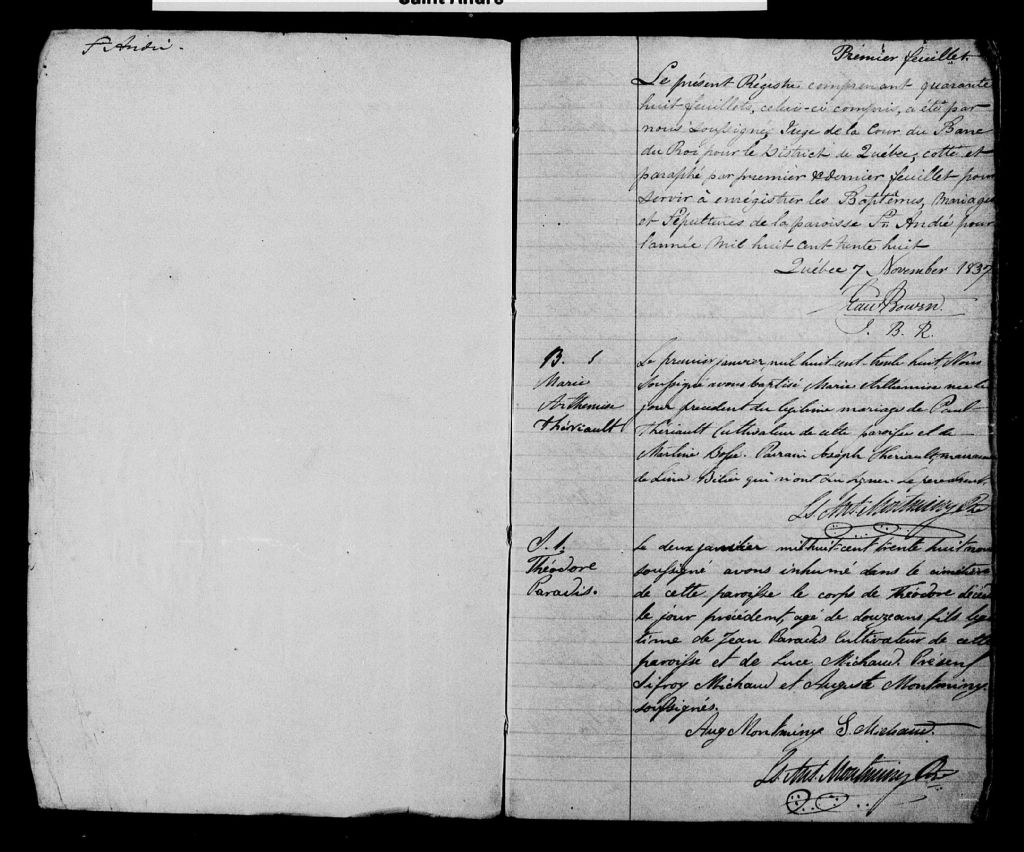 Saint André
St André.
Premier feuillet.
Le présent Régistre comprenant quarante
huit feuillets, celui-ci compris, a été par
nous soussigné, Juge de la Cour du Banc
du Roi pour le District de Québec, cotté et
paraphé par premier & dernier feuillet pour
servir à enrégistrer les Baptêmes, Mariages
et Sépultures de la paroisse St André pour
l'année mil huit cent trente huit
Québec 7 November 1837
Bowen
J. B. R.
B. 1
Marie
Arthemise
Thériault
Le premier janvier, mil huit cent trente huit, Nous
soussigné avons baptisé Marie Arthemise née le
jour precedent du légitime mariage de Paul
Thériault Cultivateur de cette paroisse et de
Parrain Joseph Theriault, marraine
qui n'ont su signer
Ls Ant. Montminy Ptre
S. 1.
Théodore
Paradis.
Le deux janvier mil huit cent trente huit nous
soussigné avons inhumé dans le cimetière
de cette paroisse le corps de Théodore décédé
le jour précédent, agé de douze ans fils légi
time de Jean Paradis Cultivateur de cette
paroisse et de Luce Michaud. Présens
Sifroy Michaud et Auguste Montminy
soussignés.
Aug Montminy S. Michaud.
Ls Ant. Montminy Ptre